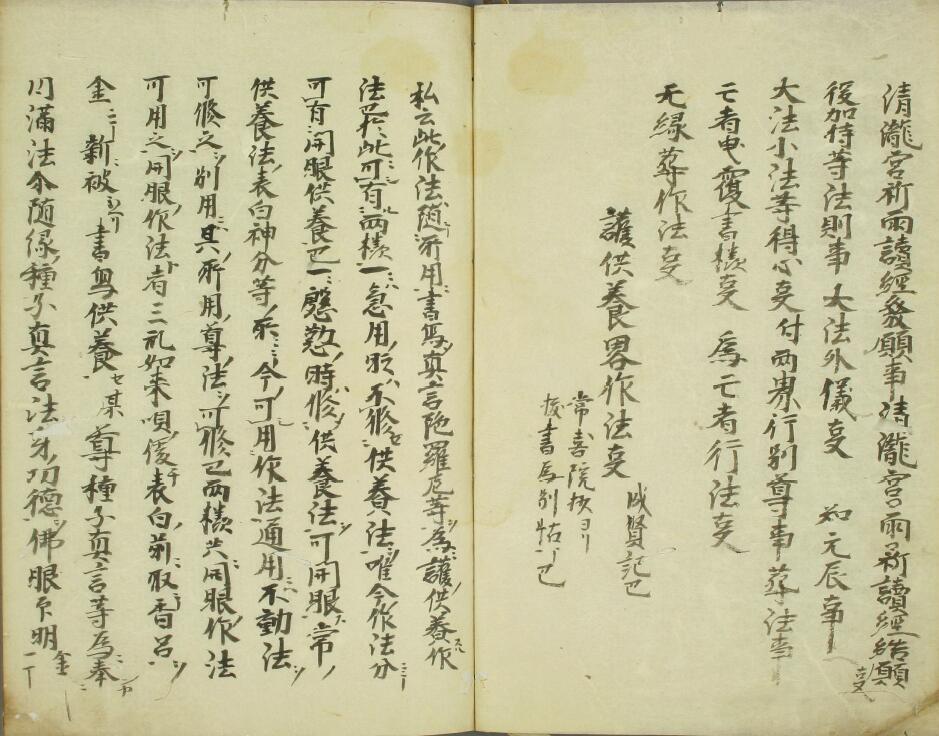 清瀧宮祈雨讀經發願事 清瀧宮雨祈讀經結願事
後加持等法則事 大法外儀事 知元辰事
大法小法等得心事 付両界行別尊事 葬法事
亡者曳覆書様事 為亡者行法事
无縁葬作法事
護供養畧作法事 成賢記已
常喜院抄ヨリ
抜書為別帖了已
私云此作法随所用書寫真言陀羅尼等為護供養作
法也 於此可有両様一急用時不修供養法唯今作法分ニ
可有開眼供養已一慇懃時修供養法可開眼常
供養法表白神分等所今可用作法通用不動法
可修之別用其所用尊法可修已両様共開眼作法
可用之開眼作法者三礼如来唄優表白前取香呂
金二丁 新被 書寫供養セ某尊種子真言等為奉
円滿法分随縁種子真言法身功德佛眼印明一丁金